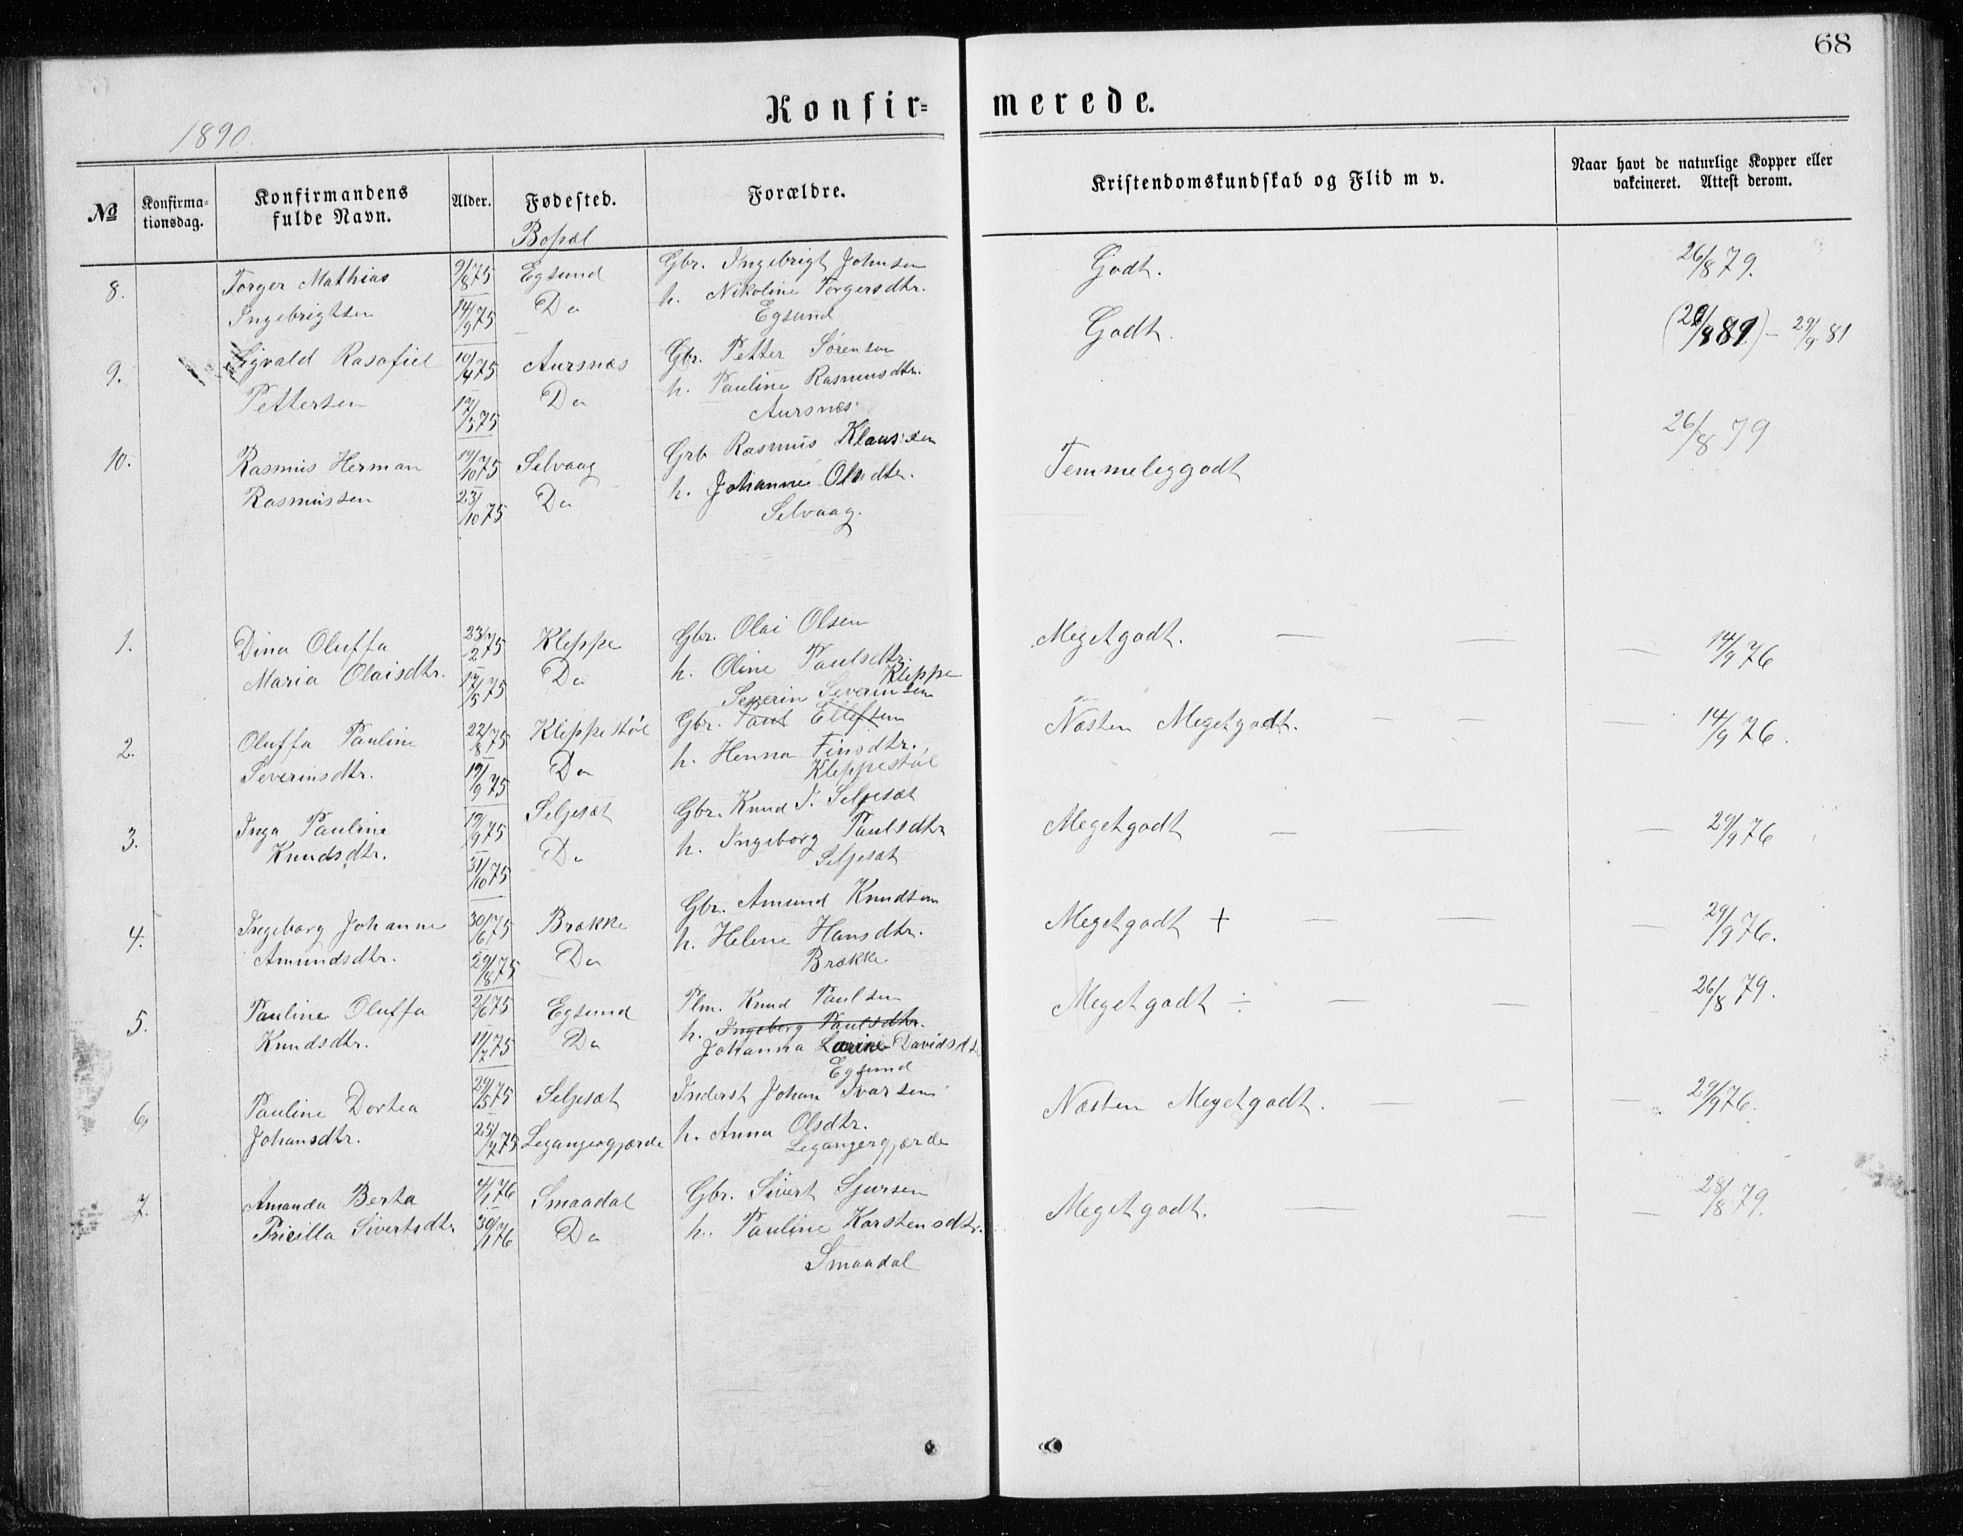 68
Konfirmerede.
1890.
No
Konfirmationsdag.
Konfirmandens fulde Navn.
Alder.
Fødested.
Bopæl
Forældre.
Kristendomskundskab og Flid m v.
Naar havt de naturlige Kopper eller vakcineret. Attest derom.
8. Torger Mathias 9/8 75 Egsund Gbr. Ingebrigt Johnsen Godt. 26/8 79.
Ingebrigtsen 14/9 75 Do h. Nikoline Torgersdtr.
Egsund
9. Sigvald Rasafiel 10/4 75 Aursnæs Gbr. Petter Sørensen Godt. 29/9 81
Pettersen 17/5 75 Do h. Pauline Rasmusdtr.
Aursnæs
10. Rasmus Herman 19/10 75 Selvaag Grb Rasmus Klaussen Temmeliggodt 26/8 79
Rasmussen 23/10 75 Do h. Johanne Olsdtr.
Selvaag.
1. Dina Oluffa 23/2 75 Kleppe Gbr. Olai Olsen Megetgodt. — — — 14/9 76
Maria Olaisdtr. 17/5 75 Do h. Oline Paulsdtr.
Kleppe
Severin Severinsen
2. Oluffa Pauline 22/8 75 Kleppestøl Gbr. Paul Ellefsen Næsten Megetgodt. — — — 14/9 76.
Severinsdtr. 19/9 75 Do h. Henna Finsdtr.,
Kleppestøl
3. Inga Pauline 19/9 75 Seljesæt Gbr. Knud I. Seljesæt Megetgodt — — — 29/9 76
Knudsdtr. 31/10 75 Do h. Ingeborg Paulsdtr
Seljesæt
4. Ingeborg Johanne 30/6 75 Brække Gbr. Amund Knudsen Megetgodt + — — — 29/9 76.
Amundsdtr. 29/8 75 Do h. Helene Hansdtr.
Brække
5. Pauline Oluffa 2/6 75 Egsund Plm. Knud Paulsen Megetgodt ÷ — — 26/8 79.
Knudsdtr. 11/7 75 Do h. Ingeborg Paulsdtr.
Johanna Larine Davidsdt
Egsund
6, Pauline Dortea 29/5 75 Seljesæt Inderst Johan Ivarsen Næsten Megetgodt. — — — 29/9 76.
Johansdtr. 25/7 75 Legangergjærde h. Anna Olsdtr.
Legangergjærde
7. Amanda Berta 4/1 76 Smaadal Gbr. Sivert Sjursen Megetgodt. — — — 28/8 79.
Pricilla Sivertsdtr 30/1 76 Do h. Pauline Karstensdtr.
Smaadal